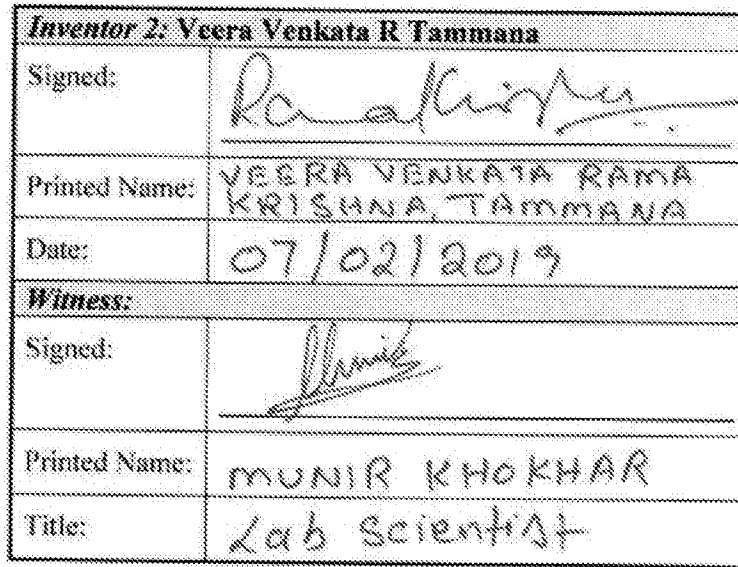 Inventor 2: Veera Venkata R Tammana
Signed: Ramakrishna
Printed Name: VEERA VENKATA RAMA
KRISHNA, TAMMANA
Date: 07/02/2019
Witness:
Signed:
Printed Name: MUNIR KHOKHAR
Title: Lab Scientist